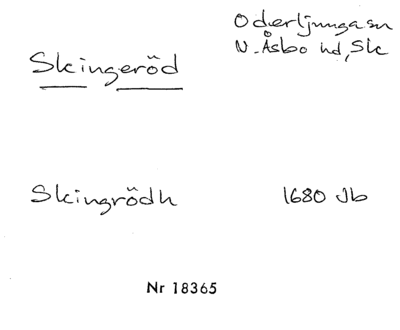 Oderljunga sn
Skingeröd N. Åsbo hd, Sk
Skingrödh 1680 Jb
Nr 18365